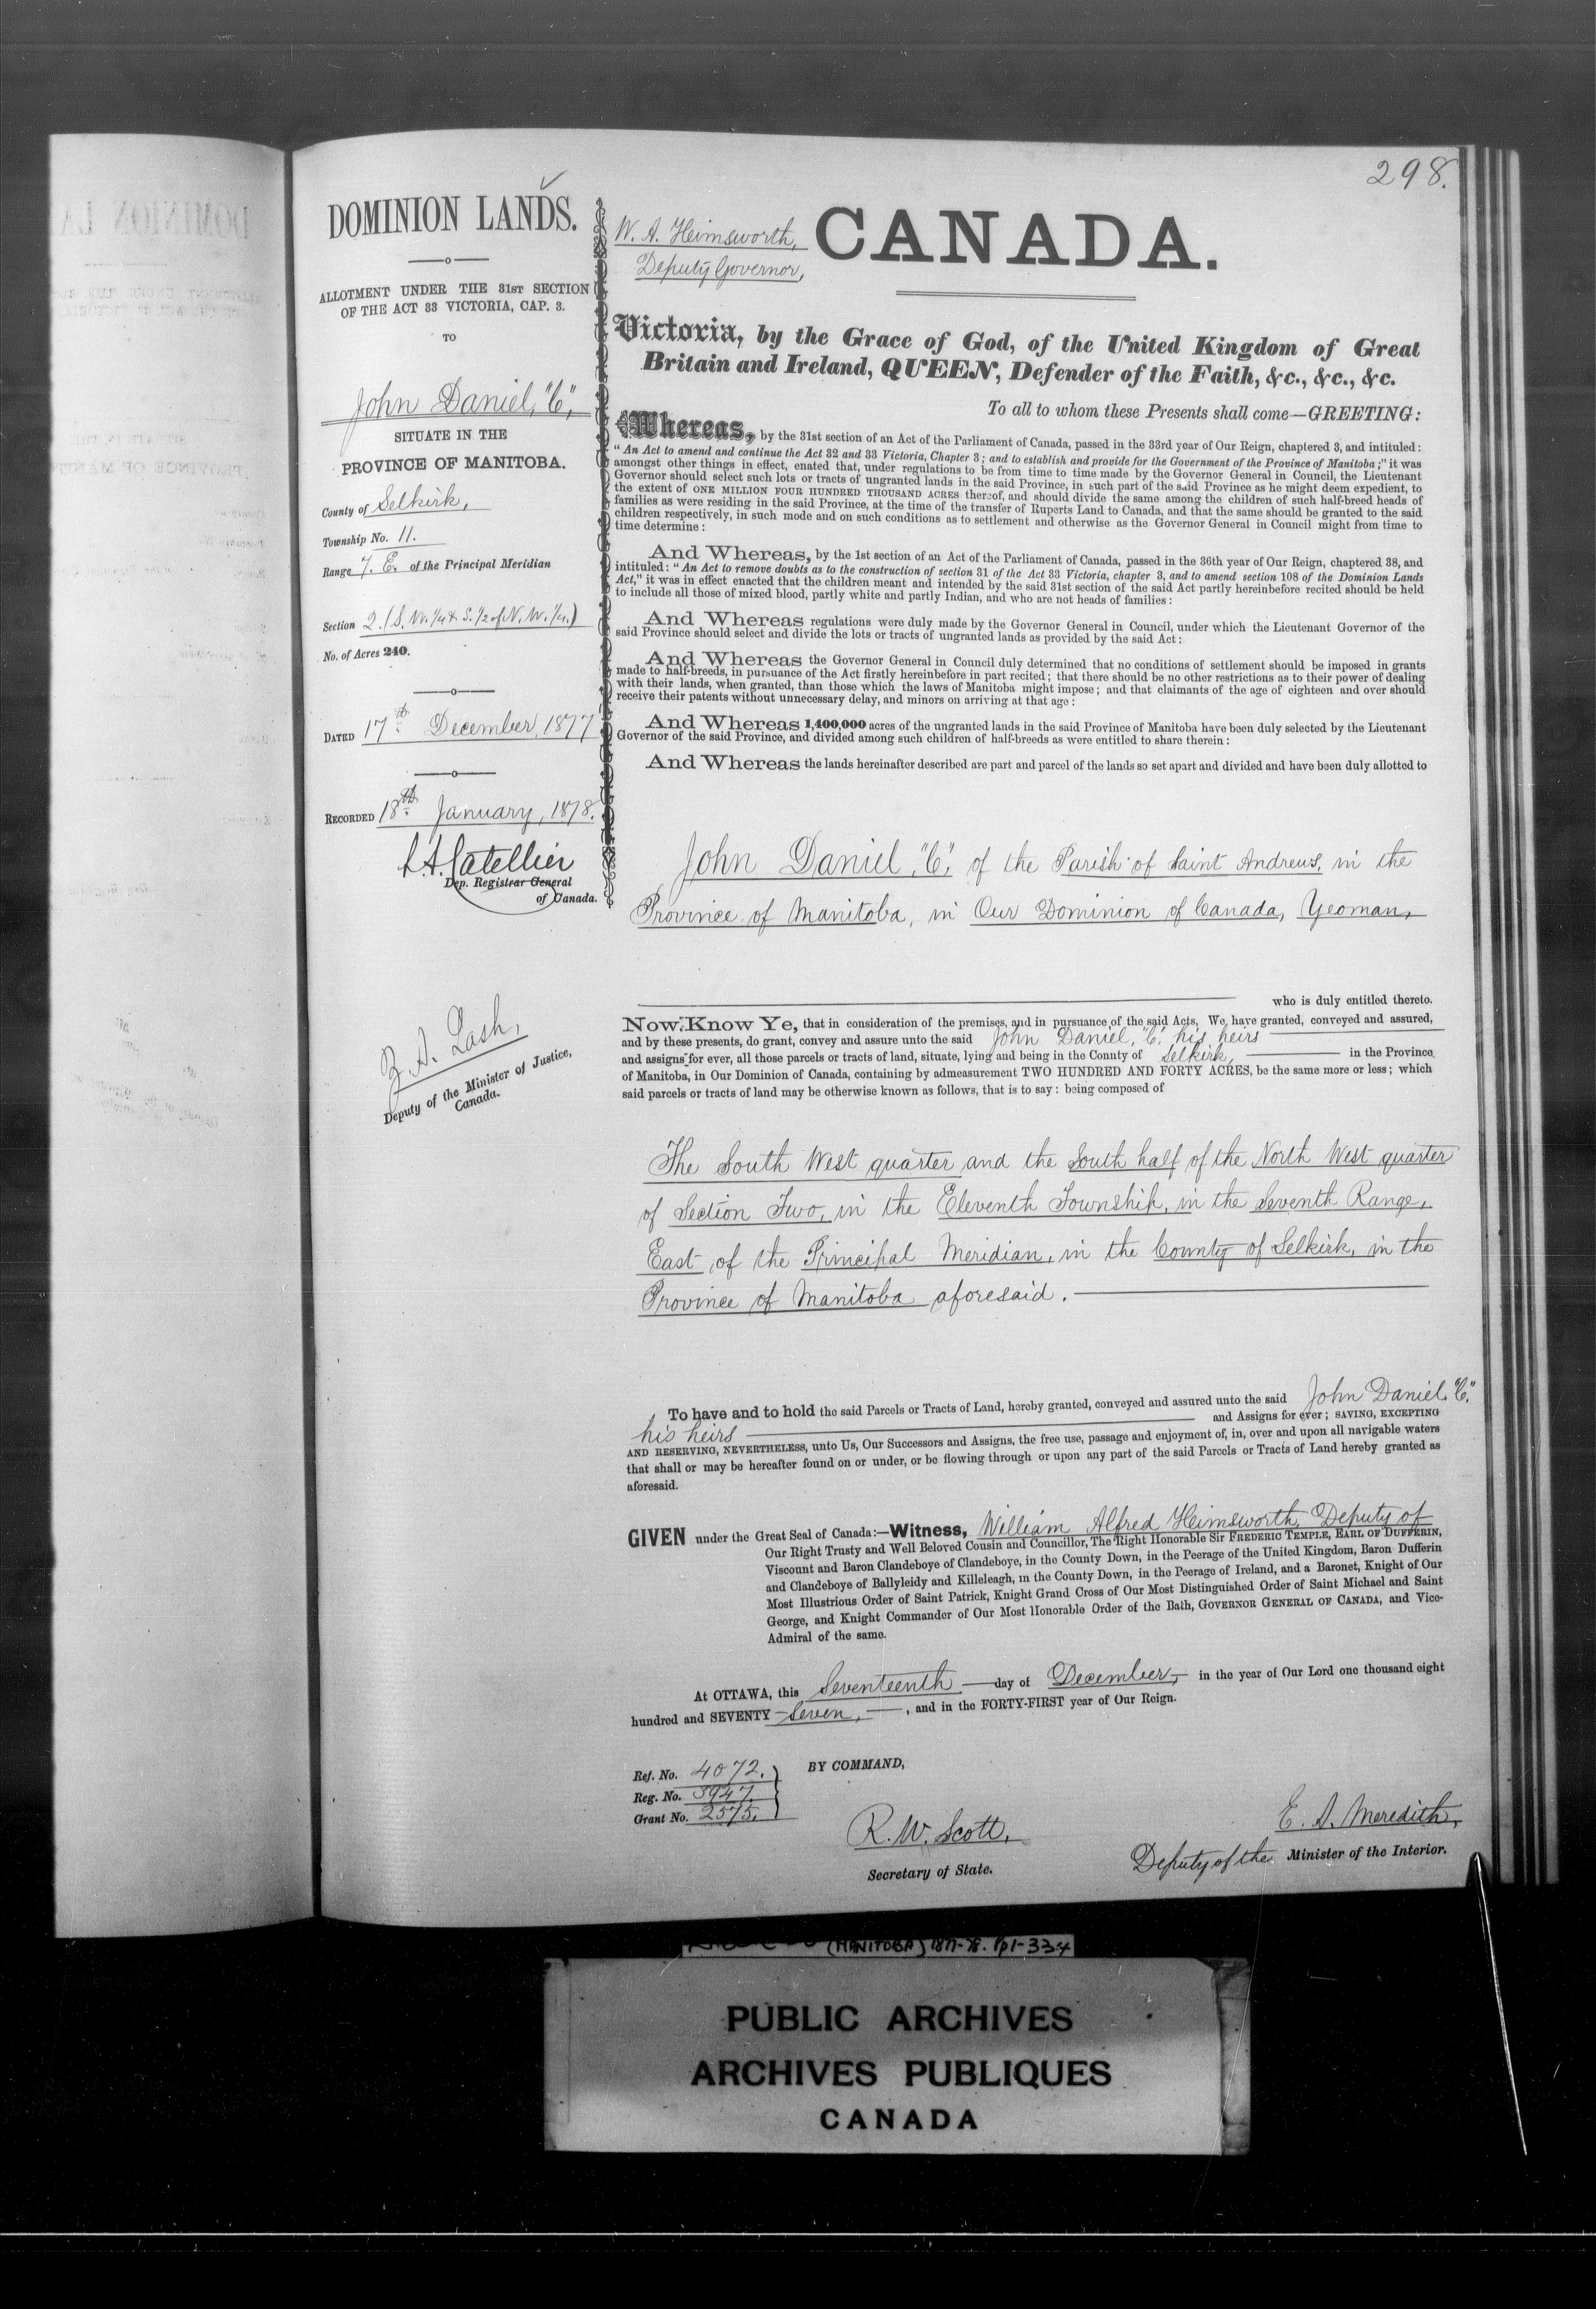 298.
DOMINION LANDS.
ALLOTMENT UNDER THE 31ST SECTION
OF THE ACT 33 VICTORIA, CAP. 3.
TO
John Daniel, "C",
SITUATE IN THE
PROVINCE OF MANITOBA.
County of Selkirk,
Township No. 11.
Range 7. E. of the Principal Meridian
Section 2. (S. W. 1/4 & S. 1/2 of N. W. 1/4.)
No. of Acres 240.
DATED 17th December, 1877
RECORDED 18th January, 1878.
L.A. Catellier
Dep. Registrar General
of Canada.
Z. A. Lash,
Deputy of the Minister of Justice,
Canada.
W. A. Heimsworth,
Deputy Governor,
CANADA.
Victoria, by the Grace of God, of the United Kingdom of Great
Britain and Ireland, QUEEN, Defender of the Faith, &c., &c., &c.
To all to whom these Presents shall come—GREETING:
Whereas, by the 31st section of an Act of the Parliament of Canada, passed in the 33rd year of Our Reign, chaptered 3, and intituled:
"An Act to amend and continue the Act 32 and 33 Victoria, Chapter 3; and to establish and provide for the Government of the Province of Manitoba;" it was
amongst other things in effect, enated that, under regulations to be from time to time made by the Governor General in Council, the Lieutenant
Governor should select such lots or tracts of ungranted lands in the said Province, in such part of the said Province as he might deem expedient, to
the extent of ONE MILLION FOUR HUNDRED THOUSAND ACRES thereof, and should divide the same among the children of such half-breed heads of
families as were residing in the said Province, at the time of the transfer of Ruperts Land to Canada, and that the same should be granted to the said
children respectively, in such mode and on such conditions as to settlement and otherwise as the Governor General in Council might from time to
time determine:
And Whereas, by the 1st section of an Act of the Parliament of Canada, passed in the 36th year of Our Reign, chaptered 38, and
intituled: "An Act to remove doubts as to the construction of section 31 of the Act 33 Victoria, chapter 3, and to amend section 108 of the Dominion Lands
Act," it was in effect enacted that the children meant and intended by the said 31st section of the said Act partly hereinbefore recited should be held
to include all those of mixed blood, partly white and partly Indian, and who are not heads of families:
And Whereas regulations were duly made by the Governor General in Council, under which the Lieutenant Governor of the
said Province should select and divide the lots or tracts of ungranted lands as provided by the said Act:
And Whereas the Governor General in Council duly determined that no conditions of settlement should be imposed in grants
made to half-breeds, in pursuance of the Act firstly hereinbefore in part recited; that there should be no other restrictions as to their power of dealing
with their lands, when granted, than those which the laws of Manitoba might impose; and that claimants of the age of eighteen and over should
receive their patents without unnecessary delay, and minors on arriving at that age:
And Whereas 1,400,000 acres of the ungranted lands in the said Province of Manitoba have been duly selected by the Lieutenant
Governor of the said Province, and divided among such children of half-breeds as were entitled to share therein:
And Whereas the lands hereinafter described are part and parcel of the lands so set apart and divided and have been duly allotted to
John Daniel, "C", of the Parish of Saint Andrews, in the
Province of Manitoba, in Our Dominion of Canada, Yeoman,
who is duly entitled thereto.
Now Know Ye, that in consideration of the premises, and in pursuance of the said Acts, We have granted, conveyed and assured,
and by these presents, do grant, convey and assure unto the said John Daniel, "C", his heirs
and assigns for ever, all those parcels or tracts of land, situate, lying and being in the County of Selkirk, in the Province
of Manitoba, in Our Dominion of Canada, containing by admeasurement TWO HUNDRED AND FORTY ACRES, be the same more or less; which
said parcels or tracts of land may be otherwise known as follows, that is to say: being composed of
The South West quarter and the South half of the North West quarter
of Section Two, in the Eleventh Township, in the Seventh Range,
East, of the Principal Meridian, in the County of Selkirk, in the
Province of Manitoba aforesaid.
To have and to hold the said Parcels or Tracts of Land, hereby granted, conveyed and assured unto the said John Daniel, "C",
his heirs and Assigns for ever; SAVING, EXCEPTING
AND RESERVING, NEVERTHELESS, unto Us, Our Successors and Assigns, the free use, passage and enjoyment of, in, over and upon all navigable waters
that shall or may be hereafter found on or under, or be flowing through or upon any part of the said Parcels or Tracts of Land hereby granted as
aforesaid.
GIVEN under the Great Seal of Canada:—Witness, William Alfred Heimsworth, Deputy of
Our Right Trusty and Well Beloved Cousin and Councillor, The Right Honorable Sir FREDERIC TEMPLE, EARL OF DUFFERIN,
Viscount and Baron Clandeboye of Clandeboye, in the County Down, in the Peerage of the United Kingdom, Baron Dufferin
and Clandeboye of Ballyleidy and Killeleagh, in the County Down, in the Peerage of Ireland, and a Baronet, Knight of Our
Most Illustrious Order of Saint Patrick, Knight Grand Cross of Our Most Distinguished Order of Saint Michael and Saint
George, and Knight Commander of Our Most Honorable Order of the Bath, GOVERNOR GENERAL OF CANADA, and Vice-
Admiral of the same.
At OTTAWA, this Seventeenth day of December, in the year of Our Lord one thousand eight
hundred and SEVENTY-Seven, , and in the FORTY-FIRST year of Our Reign.
Ref. No. 4072.
Reg. No. 3947.
Grant No. 2575.
BY COMMAND,
R. W. Scott,
Secretary of State.
E. A. Meredith,
Deputy of the Minister of the Interior.
(MANITOBA) 1877-78. Pp1-334
PUBLIC ARCHIVES
ARCHIVES PUBLIQUES
CANADA